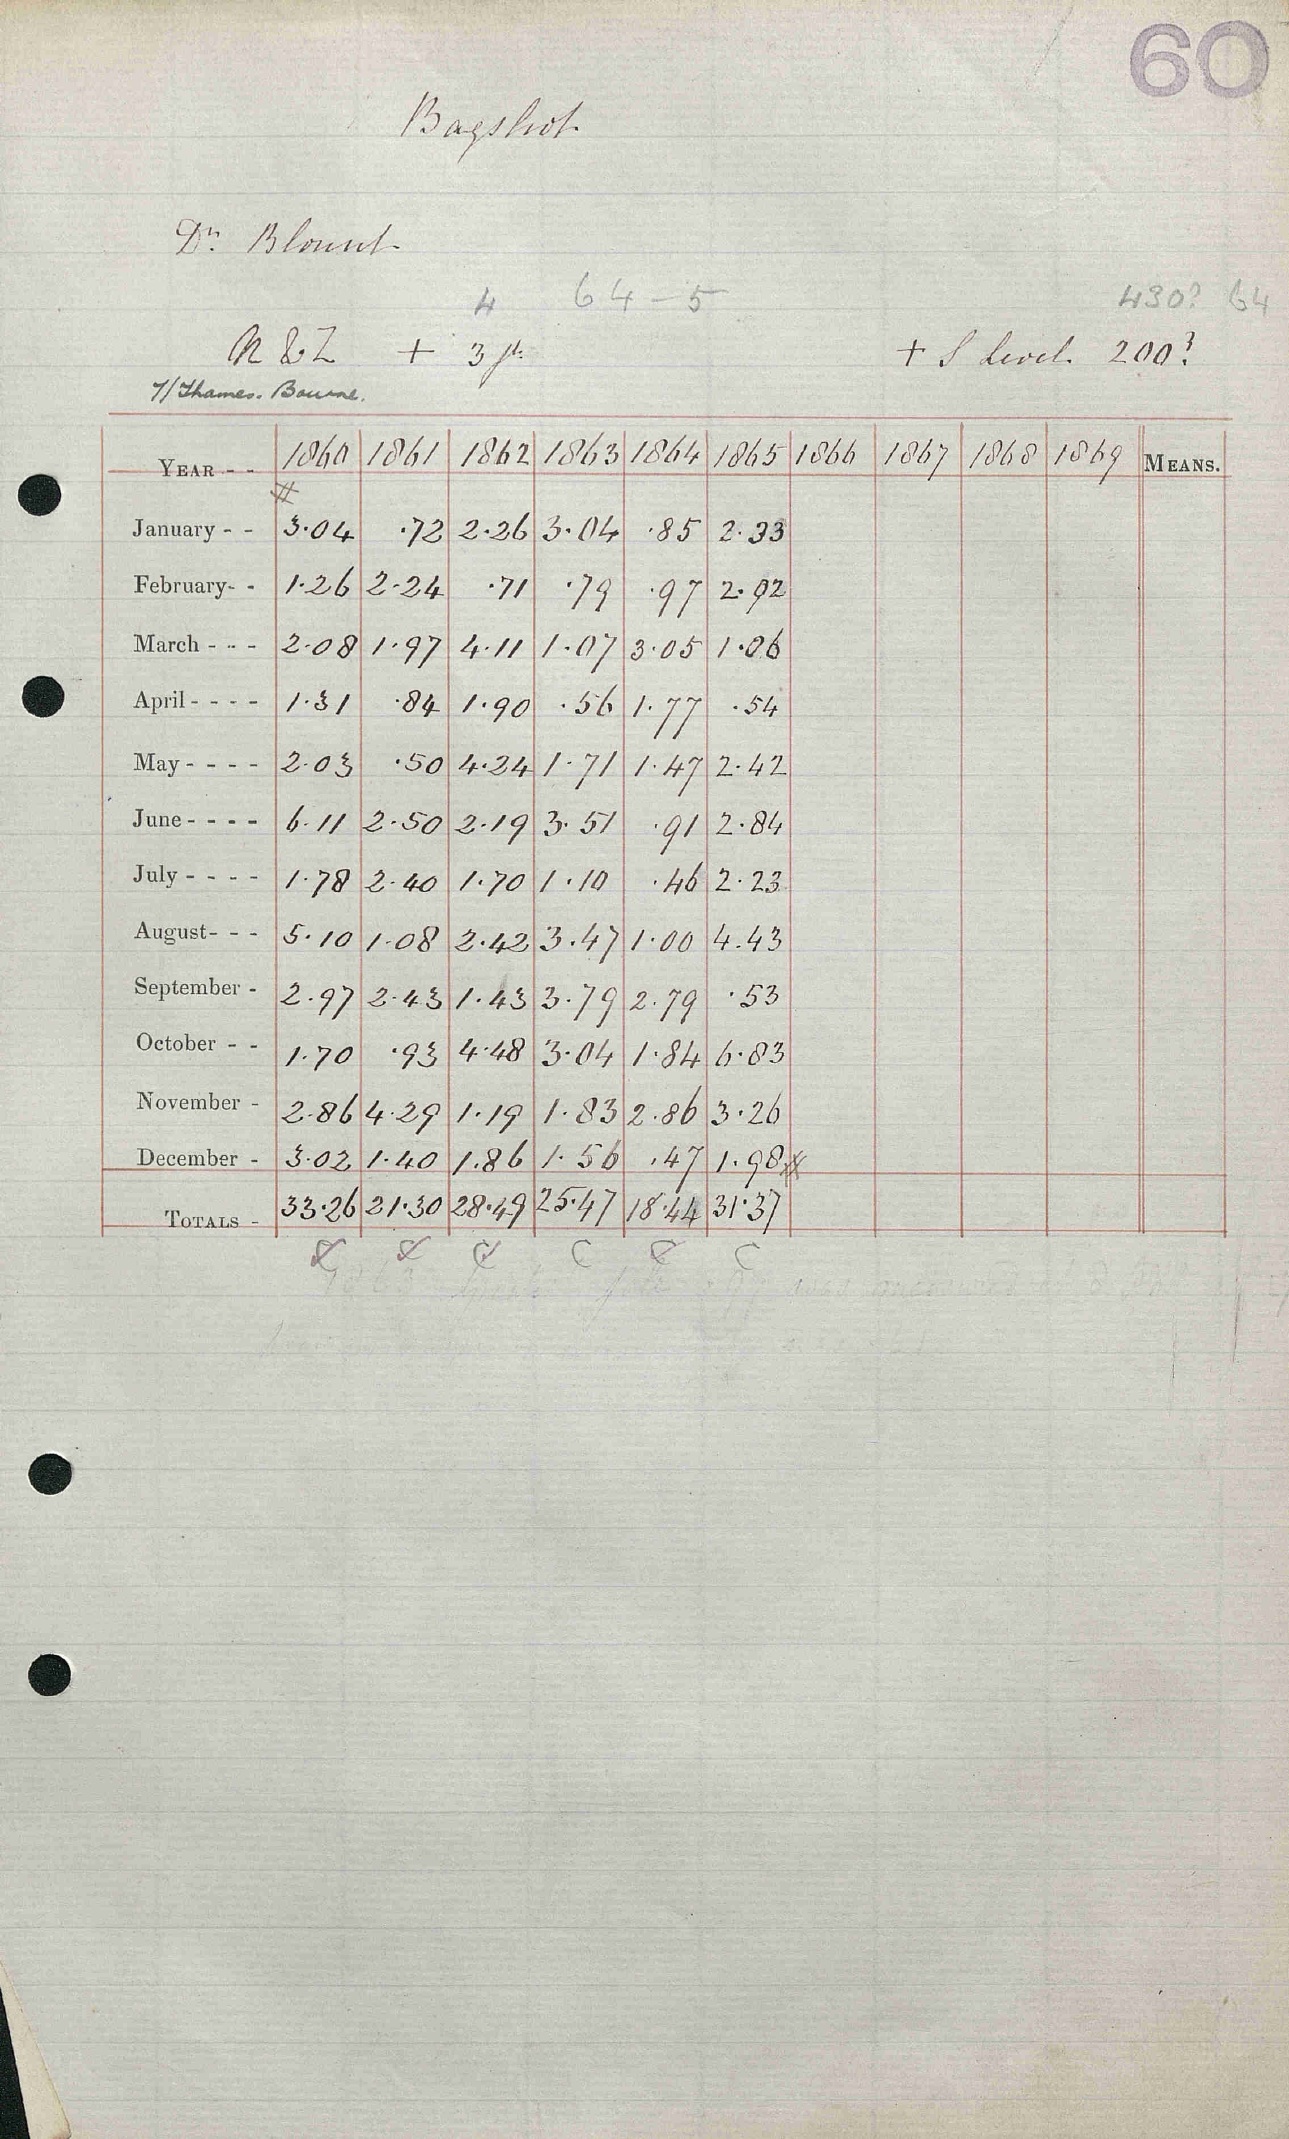 60
Bagshot
Dr. Blount
4 64-5 430? 64
+ 3 ft + S Level 200?
T/Thames. Bourne.
YEAR - - 1860 1861 1862 1863 1864 1865 1866 1867 1868 1869 MEANS.
January - - 3.04 .72 2.26 3.04 .85 2.33
February- - 1.26 2.24 .71 .79 .97 2.92
March - - - 2.08 1.97 4.11 1.07 3.05 1.06
April - - - - 1.31 .84 1.90 .56 1.77 .54
May - - - - 2.03 .50 4.24 1.71 1.47 2.42
June - - - - 6.11 2.50 2.19 3.51 .91 2.84
July - - - - 1.78 2.40 1.70 1.10 .46 2.23
August- - - 5.10 1.08 2.42 3.47 1.00 4.43
September - 2.97 2.43 1.43 3.79 2.79 .53
October - - 1.70 .93 4.48 3.04 1.84 6.83
November - 2.86 4.29 1.19 1.83 2.86 3.26
December - 3.02 1.40 1.86 1.56 .47 1.98
TOTALS - 33.26 21.30 28.49 25.47 18.44 31.37
C C C C C C
1863 was measured